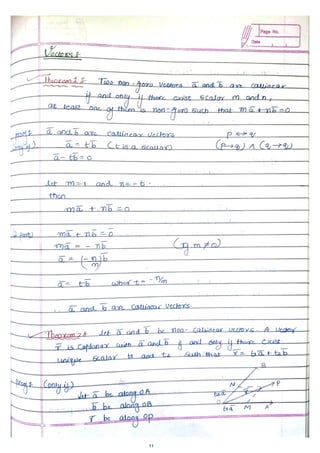 Page No.
Date
Vectors :
Theorem 1 : Two non-zero vectors a̅ and b̅ are collinear
if and only if there exist scalar m and n,
at least one of them is non-zero such that ma̅ + nb̅ = 0
a̅ and b̅ are collinear vectors p ↔ q
only if) a̅ = tb̅ (t is a scalar) (p→q) ∧ (q→p)
a̅ - tb̅ = 0
let m=1 and n=-t.
then
ma̅ + nb̅ = 0
ma̅ + nb̅ = 0̅
ma̅ = -nb̅ (if m≠0)
a̅ = (-n/m)b̅
a̅ = tb̅ where t = -n/m
∴ a̅ and b̅ are collinear vectors.
Theorem 2 : let a̅ and b̅ be non-collinear vectors. A vector
r̅ is coplanar with a̅ and b̅ if and only if there exist
unique scalar t1 and t2 such that r̅ = t1a̅ + t2b̅
(only if) B
let a̅ be along OA N P
b̅ be along OB t2b̅ r̅
r̅ be along OP O t1a̅ M A
11